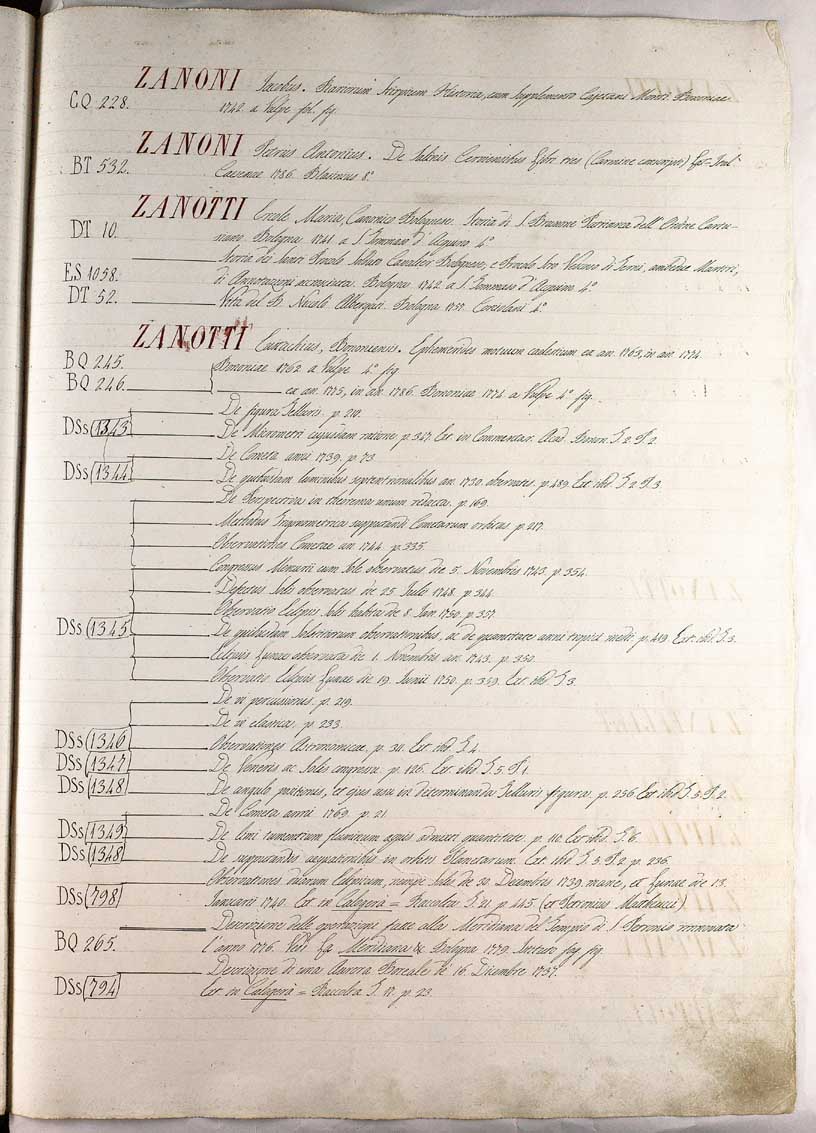 ZANONI Jacobus. Rariorum Stirpium Historia, cum Supplemento Cajetani Monti. Bononiae
CQ 228. 1742. a Vulpe fol. fig.
ZANONI Petrus Antonius. De Salinis Cerviensibus libri tres (Carmine conscripti)
BT 532. Caesenae 1786. Blasinius 8º
ZANOTTI Ercole Maria, Canonico Bolognese. Storia di S. Brunone Patriarca dell' Ordine Cartu-
DT 10. siano. Bologna 1741. a S. Tommaso d'Aquino 4º
Storia dei Santi Procolo Soldato Cavalier Bolognese, e Procolo Siro Vescovo di Terni, amendue Martiri,
ES 1058. di Annotazioni accresciuta. Bologna 1742. a S. Tommaso d'Aquino 4º
DT 52. Vita del B. Nicolò Albergati. Bologna 1757. Corsolani 4º
ZANOTTI Eustachius, Bononiensis. Ephemerides motuum caelestium ex an. 1763, in an. 1774.
BQ 245. Bononiae 1762 a Vulpe 4º fig
BQ 246. ex an. 1775, in an. 1786. Bononiae 1774 a Vulpe 4º fig.
De figura Telluris. p. 210.
DSs 1343 De Micrometri cujusdam ratione. p. 347. Ext. in Commentar. Acad. Bonon. T. 2. P. 2.
De Cometa anni 1739. p. 73
DSs 1344 De quibusdam luminibus septentrionalibus an. 1730. observatis. p. 489. Ext. ibid. T. 2. P. 3
De Perspectiva in theorema unum redacta. p. 169.
Methodus Trigonometrica supputandi Cometarum orbitas p. 217.
Observationes Cometae an 1744. p. 335.
Congressus Mercurii cum Sole observatus die 5. Novembris 1743. p. 354.
Defectus Solis observatus die 25. Julii 1748. p. 344.
Observatio Eclipsis Solis habita die 8. Jan. 1750. p. 357.
DSs 1345 De quibusdam Solstitiorum observationibus, ac de quantitate anni tropici medii. p. 419. Ext. ibid. T. 3.
Eclipsis Lunae observata die 1. Novembris an. 1743. p. 350.
Observatio Eclipsis Lunae die 19. Junii 1750. p. 359. Ext. ibid. T. 3
De vi percussionis. p. 219.
De vi elastica. p. 233.
DSs 1346 Observationes Astronomicae. p. 34. Ext. ibid. T. 4.
DSs 1347 De Veneris ac Solis congressu. p. 126. Ext. ibid. T. 5. P. 1.
DSs 1348 De angulo positionis, et ejus usu in determinanda Telluris figura. p. 236 Ext. ibid. T. 5. P. 2.
De Cometa anni 1769. p. 21.
DSs 1349 De limi tumentium fluminum aquis admixti quantitate. p. 110. Ext. ibid. T. 6.
DSs 1348 De supputandis aequationibus in orbitis Planetarum. Ext. ibid. T. 5. P. 2. p. 236.
Observationes duarum Eclipsium, nempe Solis die 30. Decembris 1739. mane, et Lunae die 13.
DSs 798 Januarii 1740. Ext. in Calogerà = Raccolta T. 21. p. 445. (et Petronius Matteucci)
Descrizione delle operazioni fatte alla Meridiana del Tempio di S. Petronio rinnovata
BQ 265. l'anno 1776. Ved. La Meridiana &c. Bologna 1779. fig.
Descrizione di una Aurora Boreale de 16. Dicembre 1737.
DSs 794 Ext. in Calogerà = Raccolta T. 17. p. 23.